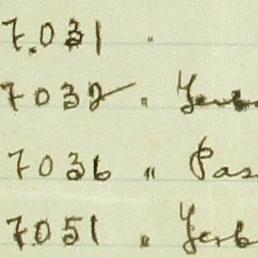 7031 .
7032 "
7036 " Pas
7051 " Jerb